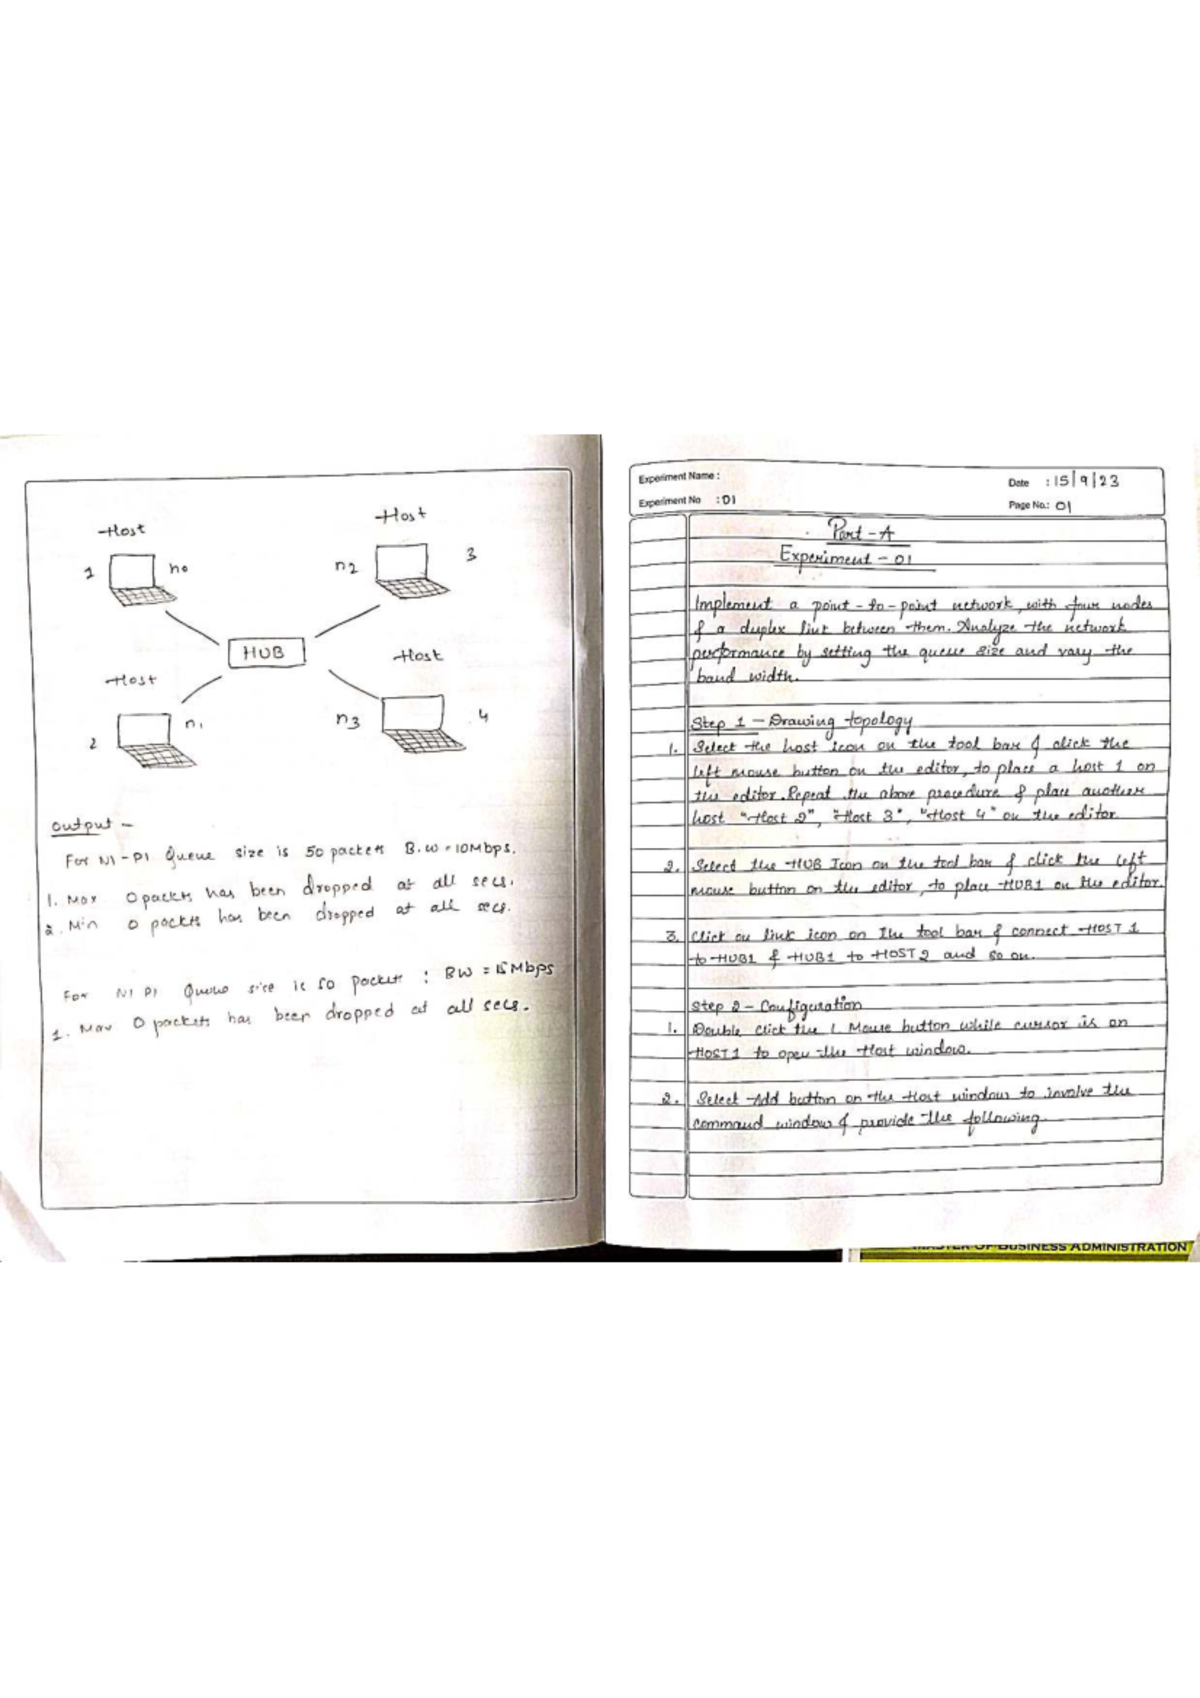 Host
1
n0
Host
n2
3
HUB
Host
2
n1
Host
n3
4
output -
For N1-P1 Queue size is 50 packets B.W = 10Mbps.
1. Max 0 packets has been dropped at all secs.
2. Min 0 packets has been dropped at all secs.
For N1 P1 Queue size is 50 packets : BW = Mbps
1. Max 0 packets has been dropped at all secs.
Experiment Name :
Experiment No : 01
Date : 15/9/23
Page No.: 01
Part-A
Experiment - 01
Implement a point-to-point network, with four nodes
& a duplex link between them. Analyze the network
performance by setting the queue size and vary the
band width.
Step 1 - Drawing topology
1. Select the host icon on the tool bar & click the
left mouse button on the editor, to place a host 1 on
the editor. Repeat the above procedure & place another
host "Host 2", "Host 3", "Host 4" on the editor.
2. Select the HUB Icon on the tool bar & click the left
mouse button on the editor, to place HUB1 on the editor.
3. Click on link icon on the tool bar & connect HOST 1
to HUB1 & HUB1 to HOST 2 and so on.
Step 2 - Configuration
1. Double click the L Mouse button while cursor is on
HOST 1 to open the Host window.
2. Select Add button on the Host window to involve the
command window & provide the following.
MASTER OF BUSINESS ADMINISTRATION